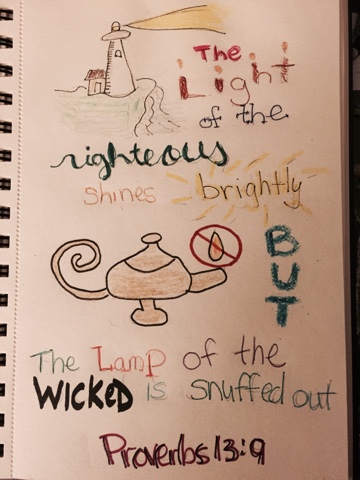 The
Light
of the
righteous
shines brightly
BUT
The Lamp of the
WICKED is snuffed out
Proverbs 13:9